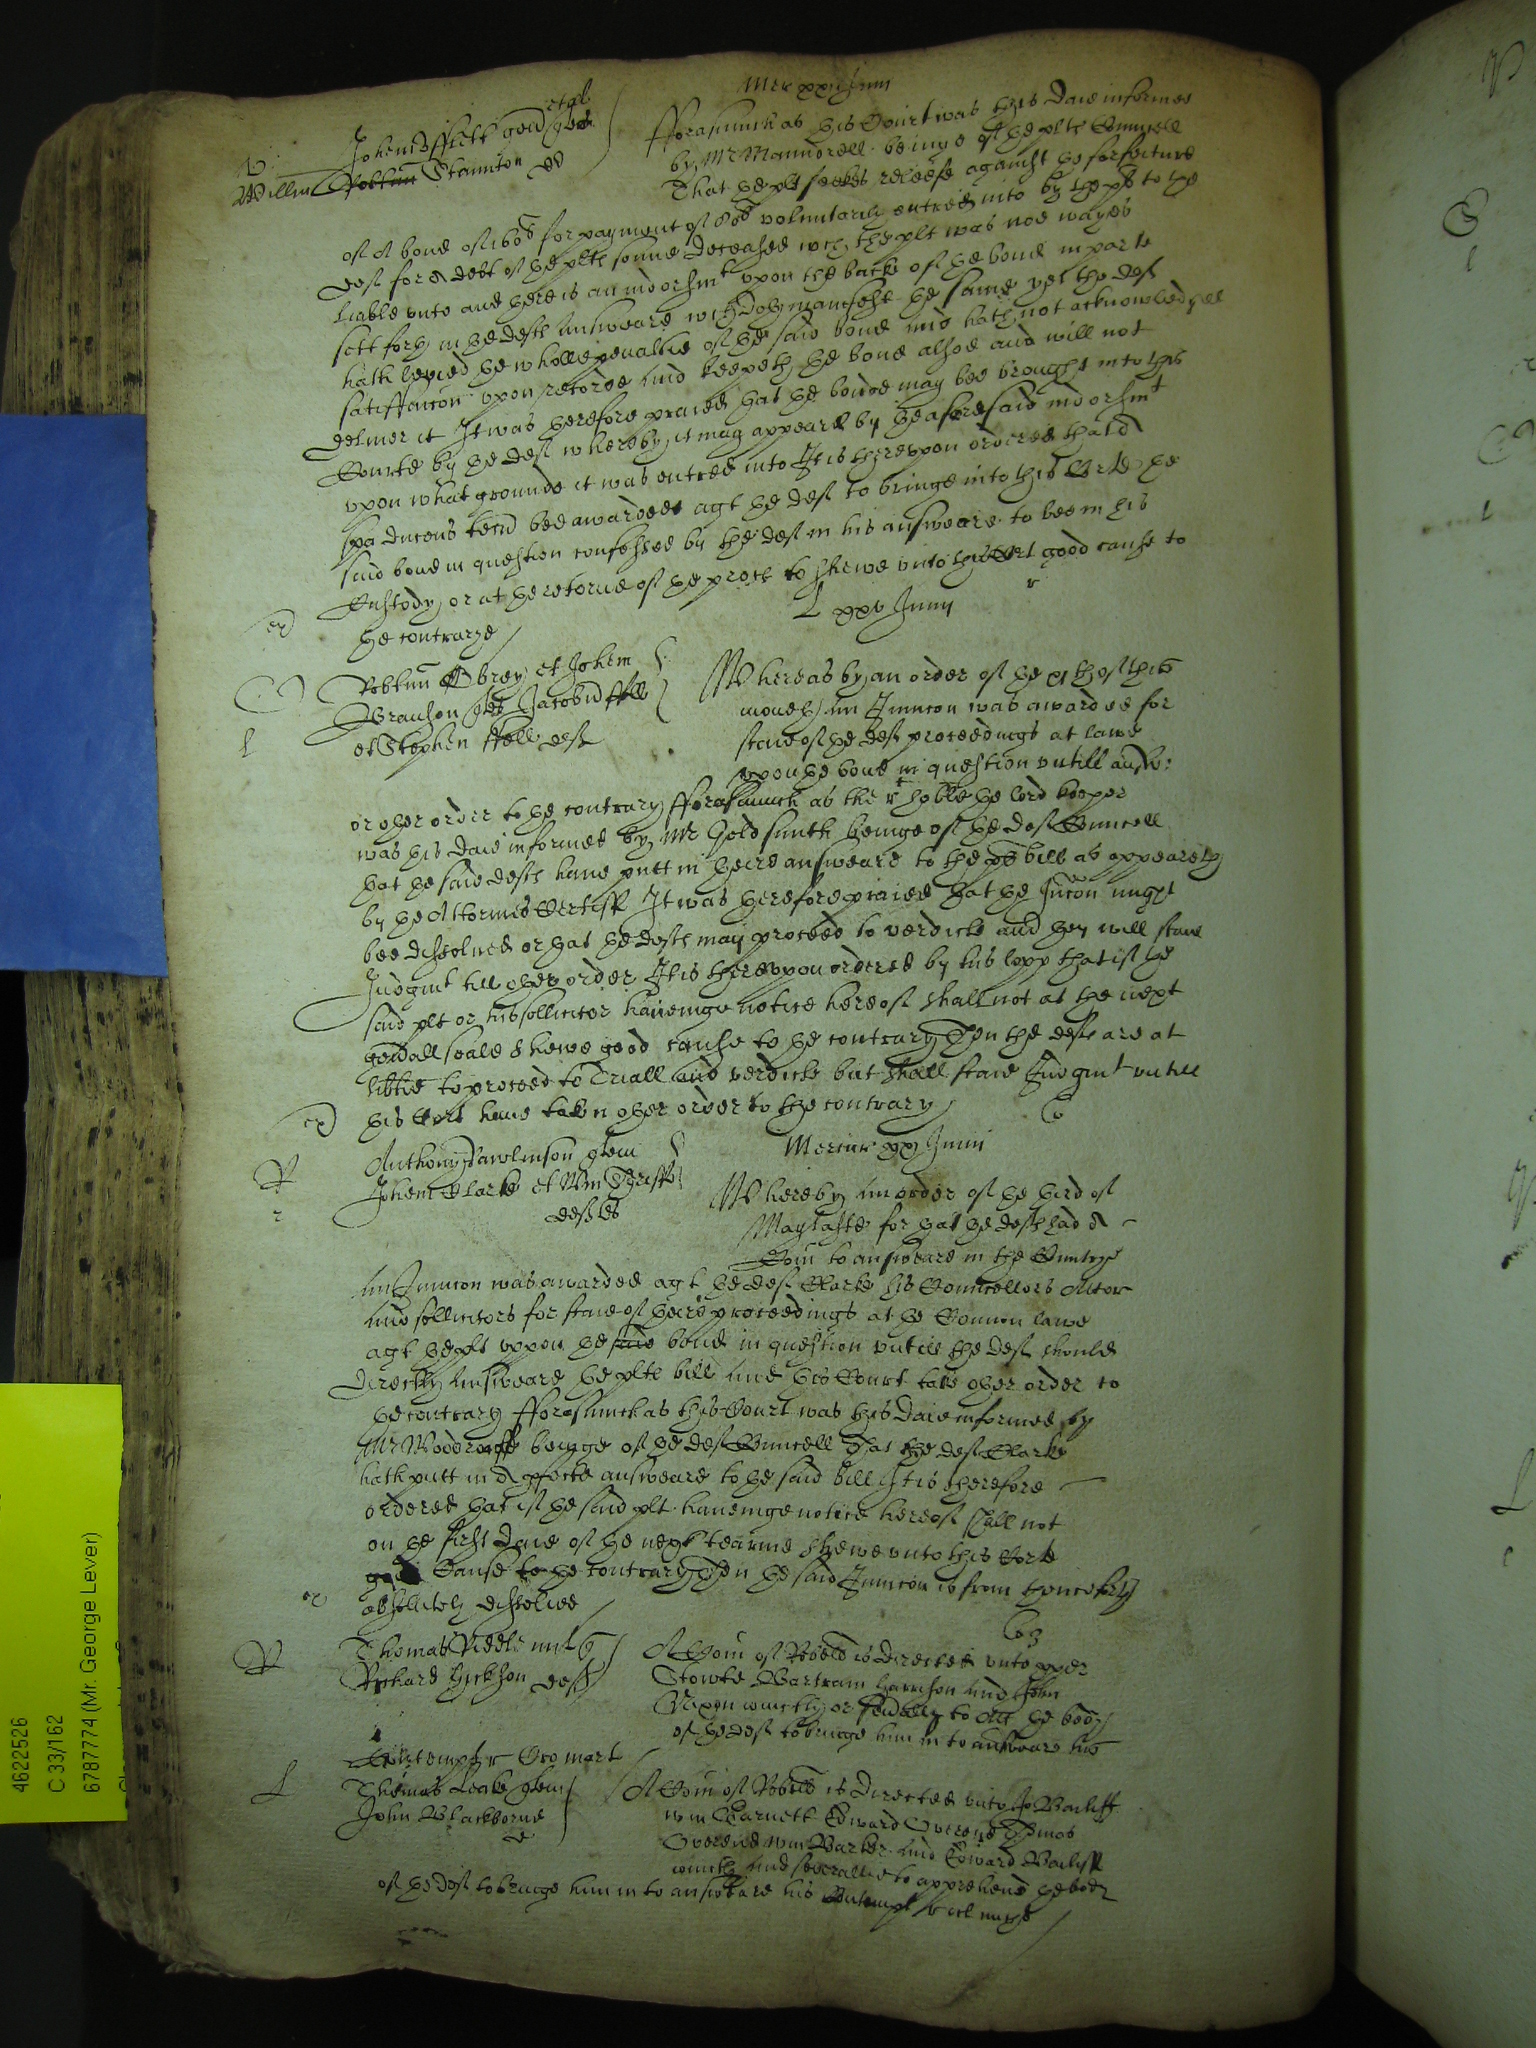 Mer xxij Junij
Johem ffitt gen et al
Willm Robtum Staunton
fforasmuch as this Court was this daie informed
by Mr Maundrell beinge of the plts Councell
That the plt seekes releese against the forfeiture
of A bond of 160l for payment of 80l voluntarily entred into by the plt to the
deft for A debt of the plts sonne deceased wch the plt was noe wayes
liable unto and there is an indorsmt upon the backe of the bond in parte
sett forth in the defts Answeare wch doth manifest the same yet the deft
hath levied the whole penaltie of the said bond and hath not acknowledged
satisfaccon upon recorde And keepeth the bond alsoe and will not
deliver it It was therefore praied that the bonde may bee brought into this
Courte by the deft whereby it may appeare by the aforesaid indorsmt
upon what grounde it was entred into It is thereupon ordered that A
spa ducens tecu bee awarded agt the deft to bringe into this Corte the
said bond in question confessed by the deft in his answeare to bee in his
Custody or at the retorne of the proces to shewe unto this Cort good cause to
the contrarye
L xxv Junij
Robtum Obrey et Johem
Branson ples Jacobu ffell
et Stephen ffell deft
Whereas by an order of the xjth of this
moneth An Iniuncon was awarded for
staie of the deft proceedings at lawe
upon the bond in question untill answ:
or other order to the contrary fforasmuch as the rt hoble the lord keeper
was this daie informed by Mr Goldsmith beinge of the deft Councell
that the said defts have putt in theire answeare to the plts bill as appeareth
by the Attornies Certiff It was therefore praied that the Iniuncon might
bee dissolved or that the defts may proceed to verdicte and they will staie
Iudgmt till other order It is thereupon ordered by his lopp that if the
said plt or his sollicitor haveinge notice hereof shall not at the next
generall seale shewe good cause to the contrary Then the defts are at
libtie to proceed to Triall and verdicte but shall staie Iudgmt untill
this Cort have taken other order to the contrary
Mercur xxj Junij
Anthony Rawlinson plem
Johem Clarke et Wm
defts
Whereby An order of the third of
May laste for that the defts had A
Com to answeare in the Countrye
An Iniuncon was awarded agt the deft Clarke his Councellors Attor
And sollicitors for staie of theire proceedings at the Comon lawe
agt the plt uppon the said bond in question untill the deft should
directly Answeare the plts bill And this Court take other order to
the contrary fforasmuch as this Court was this daie informed by
Mr Woodroffe beinge of the deft Councell That the deft Clarke
hath putt in A pfecte answeare to the said bill It is therefore
ordered that if the said plt haveinge notice hereof shall not
on the first daie of the next tearme shewe unto this Corte
good Cause to the contrary Then the said Iniuncon is from thenceforth
absolutely dissolved
Thomas
Richard Hickson deft
A Com of Rebell is directed unto
Stowke Bartram Harrison And John
Nixon iointly or sevally to Att the body
of the deft to bringe him in to answeare his
Contempt r Oro mart
Thomas Leake plem
John Blackborne
d
A Com of Rebell is directed unto Jo Bailiff
wm Garnett Edward Overend Thomas
Overend wm Barker And Edward Bailiff
iointly And severallie to apprehend the body
of the deft to bringe him in to answeare his Contempt
4622526
C 33/162
6787774 (Mr. George Lever)